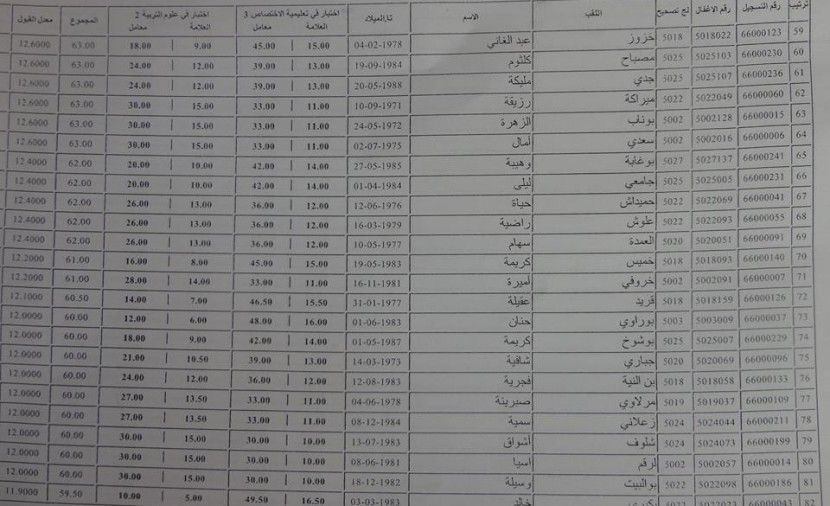 ترتيب رقم التسجيل رقم الاغفال لج تصحيح اللقب الاسم تا.الميلاد اختبار في تعليمية الاختصاص 3 اختبار في علوم التربية 2 المجموع معدل القبول
العلامة معامل العلامة معامل
59 66000123 5018022 5018 خزوز عبد الغاني 04-02-1978 15.00 45.00 9.00 18.00 63.00 12.6000
60 66000230 5025103 5025 مصباح كلثوم 19-09-1984 13.00 39.00 12.00 24.00 63.00 12.6000
61 66000236 5025107 5025 جدي مليكة 20-05-1988 13.00 39.00 12.00 24.00 63.00 12.6000
62 66000060 5022049 5022 ميراكة رزيقة 10-09-1971 11.00 33.00 15.00 30.00 63.00 12.6000
63 66000015 5002128 5002 بوناب الزهرة 24-05-1972 11.00 33.00 15.00 30.00 63.00 12.6000
64 66000006 5002016 5002 سعدي أمال 02-07-1975 11.00 33.00 15.00 30.00 63.00 12.6000
65 66000241 5027137 5027 بوغابة وهيبة 27-05-1985 14.00 42.00 10.00 20.00 62.00 12.4000
66 66000231 5025005 5025 جامعي ليلى 01-04-1984 14.00 42.00 10.00 20.00 62.00 12.4000
67 66000041 5022069 5022 حميداش حياة 12-06-1976 12.00 36.00 13.00 26.00 62.00 12.4000
68 66000055 5022093 5022 علوش راضية 16-03-1979 12.00 36.00 13.00 26.00 62.00 12.4000
69 66000091 5020051 5020 العمدة سهام 10-05-1977 12.00 36.00 13.00 26.00 62.00 12.4000
70 66000140 5018093 5018 خميس كريمة 19-05-1983 15.00 45.00 8.00 16.00 61.00 12.2000
71 66000007 5002091 5002 خروفي أميرة 16-11-1981 11.00 33.00 14.00 28.00 61.00 12.2000
72 66000126 5018159 5018 قريد عقيلة 31-01-1977 15.50 46.50 7.00 14.00 60.50 12.1000
73 66000037 5003009 5003 بوراوي حنان 01-06-1983 16.00 48.00 6.00 12.00 60.00 12.0000
74 66000229 5025007 5025 بوشوخ كريمة 01-05-1987 14.00 42.00 9.00 18.00 60.00 12.0000
75 66000096 5020069 5020 جباري شافية 14-03-1973 13.00 39.00 10.50 21.00 60.00 12.0000
76 66000133 5018058 5018 بن النية فجرية 12-08-1983 12.00 36.00 12.00 24.00 60.00 12.0000
77 66000109 5019037 5019 مرلاوي صبرينة 04-06-1978 11.00 33.00 13.50 27.00 60.00 12.0000
78 66000211 5024044 5024 زعلاني سمية 08-12-1984 11.00 33.00 13.50 27.00 60.00 12.0000
79 66000199 5024073 5024 شلوف أشواق 13-07-1983 10.00 30.00 15.00 30.00 60.00 12.0000
80 66000014 5002057 5002 لرقم آسيا 08-06-1981 10.00 30.00 15.00 30.00 60.00 12.0000
81 66000186 5022098 5022 بوالبيت وسيلة 18-12-1982 10.00 30.00 15.00 30.00 60.00 12.0000
82 66000043 5022023 5022 خالد 03-03-1983 16.50 49.50 5.00 10.00 59.50 11.9000